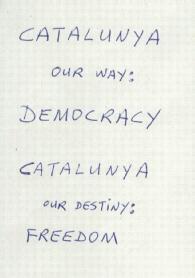 CATALUNYA
OUR WAY:
DEMOCRACY
CATALUNYA
OUR DESTINY:
FREEDOM